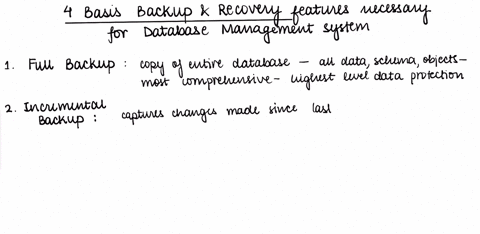 4 Basis Backup & Recovery features necessary
for Database Management system
1. Full Backup : copy of entire database – all data, schema, objects –
most comprehensive – highest level data protection
2. Incremental
Backup : captures changes made since last